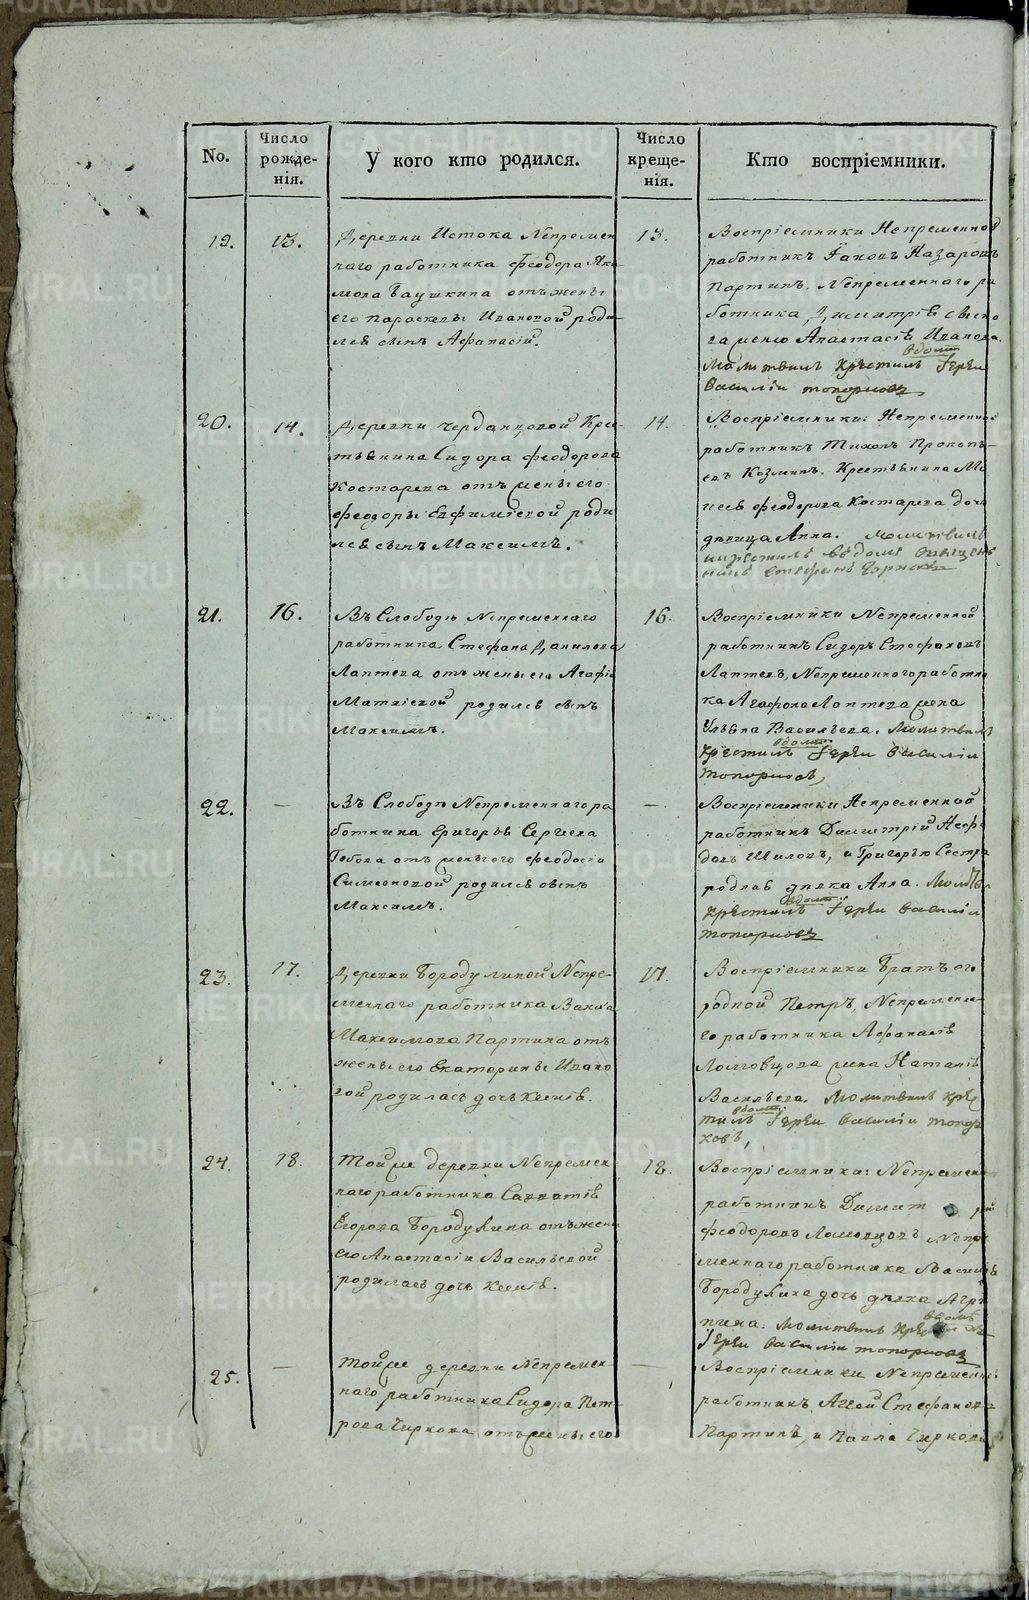 No.
Число
рожде-
нія.
У кого кто родился.
Число
креще-
нія.
Кто воспріємники.
19.
13.
Деревни Истока Непремен
наго работника Феодора Яки
мова Баушкина отъ жены
его Параскевы Ивановой роди
лся сынъ Афанасій.
13.
Воспріемники Непременной
работникъ Іаковъ Назаровъ
Партинъ, Непременнаго ра
ботника Димитрія
жена Анастасія Иванова.
Молитвилъ крестилъ вдоми Іереи
Василіи Топорковъ
20.
14.
Деревни Черданцовой Кре
тьянина Сидора Феодорова
Костарева отъ жены его
Феодоры Евфимьевой роди
лся сынъ Максимъ.
14.
Воспріемники: Непременной
работникъ Тихонъ Прокопь
евъ Козминъ. Крестьянина Мо
исея Феодорова Костарева дочь
девица Анна. молитвилъ
икрестилъ вдоме священ
никъ Стефанъ
21.
16.
Въ Слободе Непременнаго
работника Стефана Данилова
Лаптева отъ жены его Агафіи
Матвіевой родился сынъ
Максимъ.
16.
Воспріемники Непременной
работникъ Сидоръ Стефановъ
Лаптевъ, Непременного работни
ка Агафона Лаптева жена
Ульяна Васильева. Молитвилъ
крестилъ вдоми Іереи Василіи
Топорковъ
22.
—
Въ Слободе Непременнаго ра
ботника Григорья Сергеева
отъ жены его Феодосіи
Симеоновой родился сынъ
Максимъ.
—
Воспріемники Непременной
работникъ Димитрій Неофи
довъ Шиловъ, и Григорью Сестра
родная девка Анна. Молитв
крестилъ вдоми Іереи Василіи
Топорковъ
23.
17.
Деревни Бородулиной Непре-
меннаго работника
Максимова Партина отъ
жены его Екатерины Ивано
вой родилась дочь Ксенія.
17.
Воспріемники Братъ его
родной Петръ, Непременна-
го работника Афанасія
Ломовцова жена Наталія
Васильева. Молитвилъ крес
тилъ вдоми Іереи Василіи Топор
ковъ,
24.
18.
Той же деревни Непремен
наго работника Савватія
Егорова Бородулина отъ жены
его Анастасіи Васильевой
родилась дочь Ксенія.
18.
Воспріемники: Непременн
работникъ Димит рій
Феодоровъ Ломовцовъ Непре
меннаго работника Василья
Бородулина дочь девка Агри
пина. Молитвилъ вдомъ
Іереи Василіи Топорковъ
25.
—
Той же деревни Непремен-
наго работника Сидора Пет-
рова Чиркова отъ жены его
—
Воспріемники Непременной
работникъ Агей Стефановъ
Партинъ, и Павла Чиркова